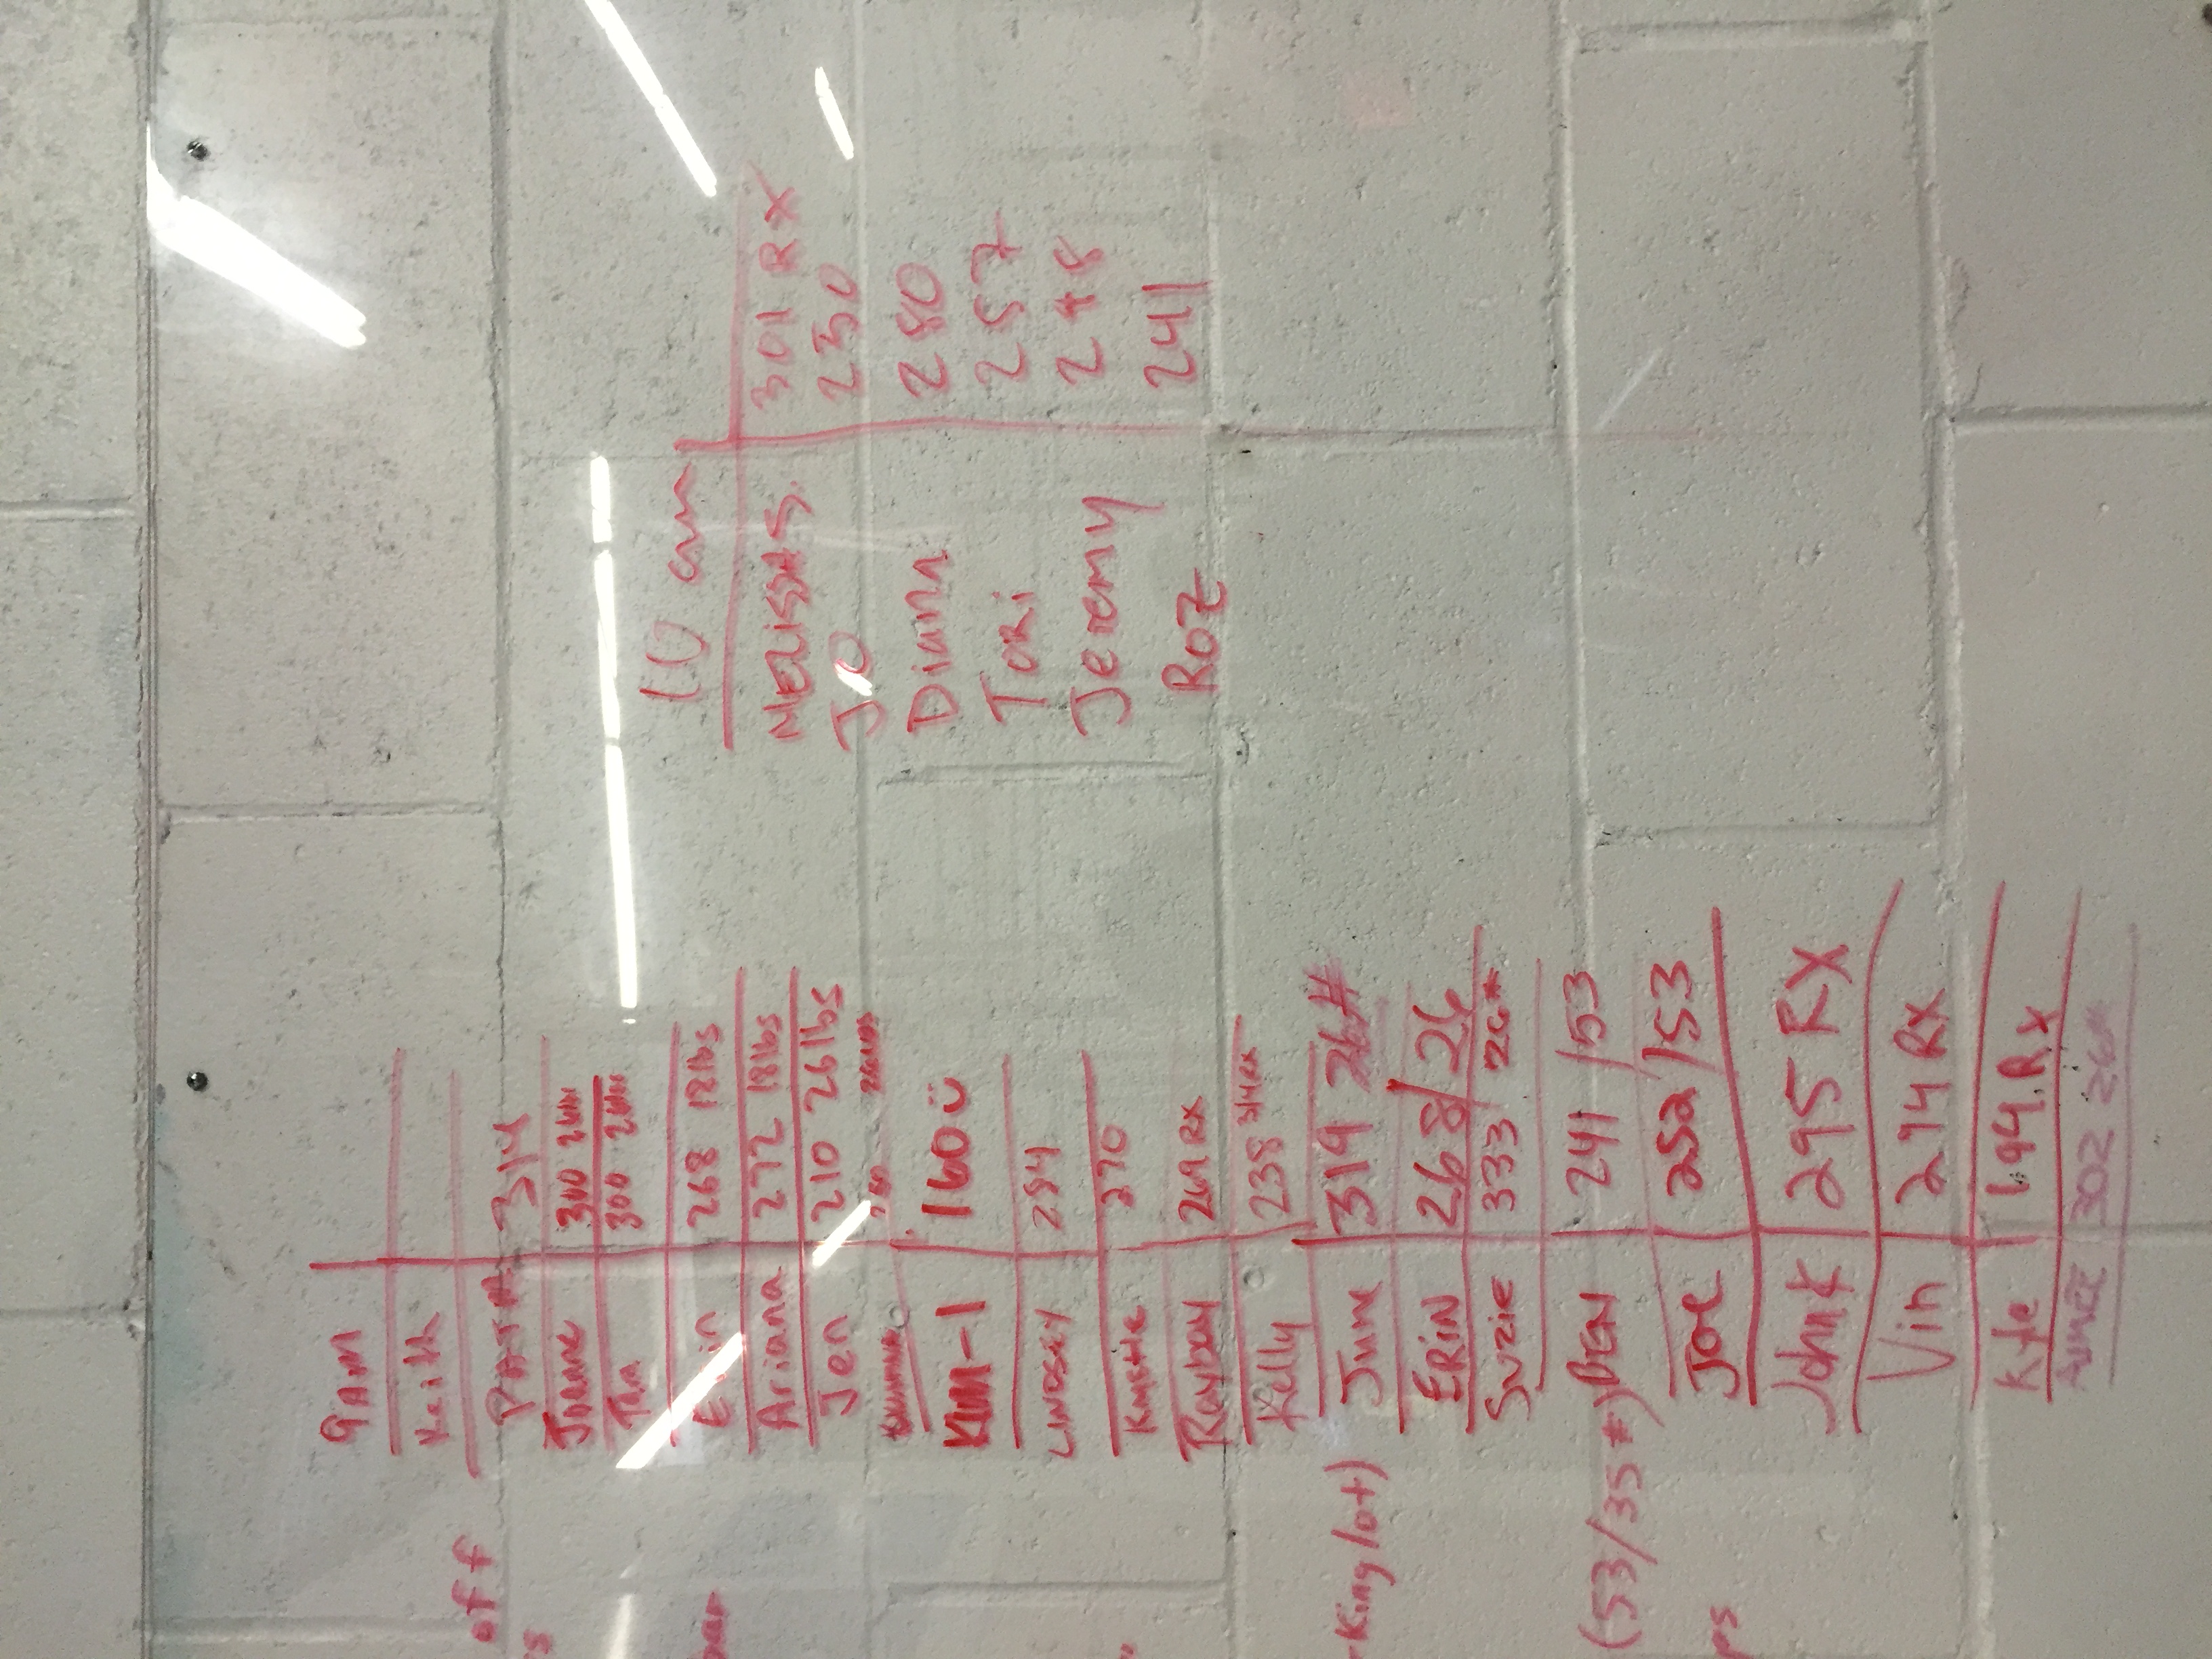 9AM
Keith
off
PATTA 314
JOANNE 300
Tia 300
Erin 268 18lbs
Arianna 272 18lbs
bar
Jen 210 26lbs
KIM-1 160 ü
LINDSEY 254
Kristie 270
Rayboy 269 RX
Kelly 238 3/4RX
-King lot)
June 319 26#
ERIN 268/26
SUZIE 333 26#
(53/35#)
BEN 241/53
Joe 252/53
ps
John K 295 RX
Vin 274 RX
Kyle 194 Rx
AIMEE 302 26#
10 am
MELISSA S. 301 RX
JO 230
Diann 280
Tori 257
Jeremy 248
ROZ 241